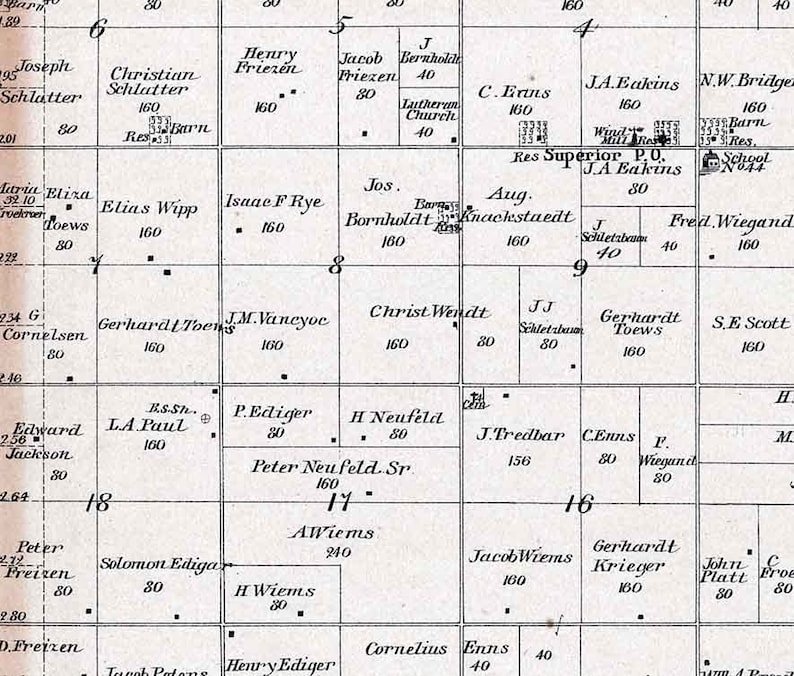 Barn
80
80
80
160
40
40
1.89
6
5
4
1.95
Joseph
Schlatter
80
2.01
Christian
Schlatter
160
Res
Barn
Henry
Friezen
160
Jacob
Friezen
80
J
Bernholdt
40
Lutheran
Church
40
C. Enns
160
J.A. Eakins
160
Wind
Mill
Res
N.W. Bridge
160
Barn
Res.
Res Superior P.O.
School
No 44
Maria
32 10
Eliza
Toews
80
2.22
Elias Wipp
160
Isaac F Rye
160
Jos.
Bornholdt
160
Barn
Res.
Aug.
Knackstaedt
160
J.A Eakins
80
J
Schletzbaum
40
40
Fred. Wiegand
160
7
8
9
2.34
G
Cornelsen
80
2.46
Gerhardt Toews
160
J.M. Vancyoc
160
Christ Wendt
160
80
J J
Schletzbaum
80
Gerhardt
Toews
160
S.E Scott
160
Edward
2.56
Jackson
80
2.64
B.S.Sh.
L.A. Paul
160
P. Ediger
80
H Neufeld
80
Peter Neufeld Sr
160
Cem
J. Tredbar
156
C. Enns
80
F.
Wiegand
80
H.
M.
18
17
16
Peter
2.72
Freizen
80
2.80
Solomon Ediga
80
A Wiems
240
H Wiems
80
Jacob Wiems
160
Gerhardt
Krieger
160
John
Platt
80
C
Froe
80
D. Freizen
Jacob Peters
Henry Ediger
Cornelius Enns
40
40